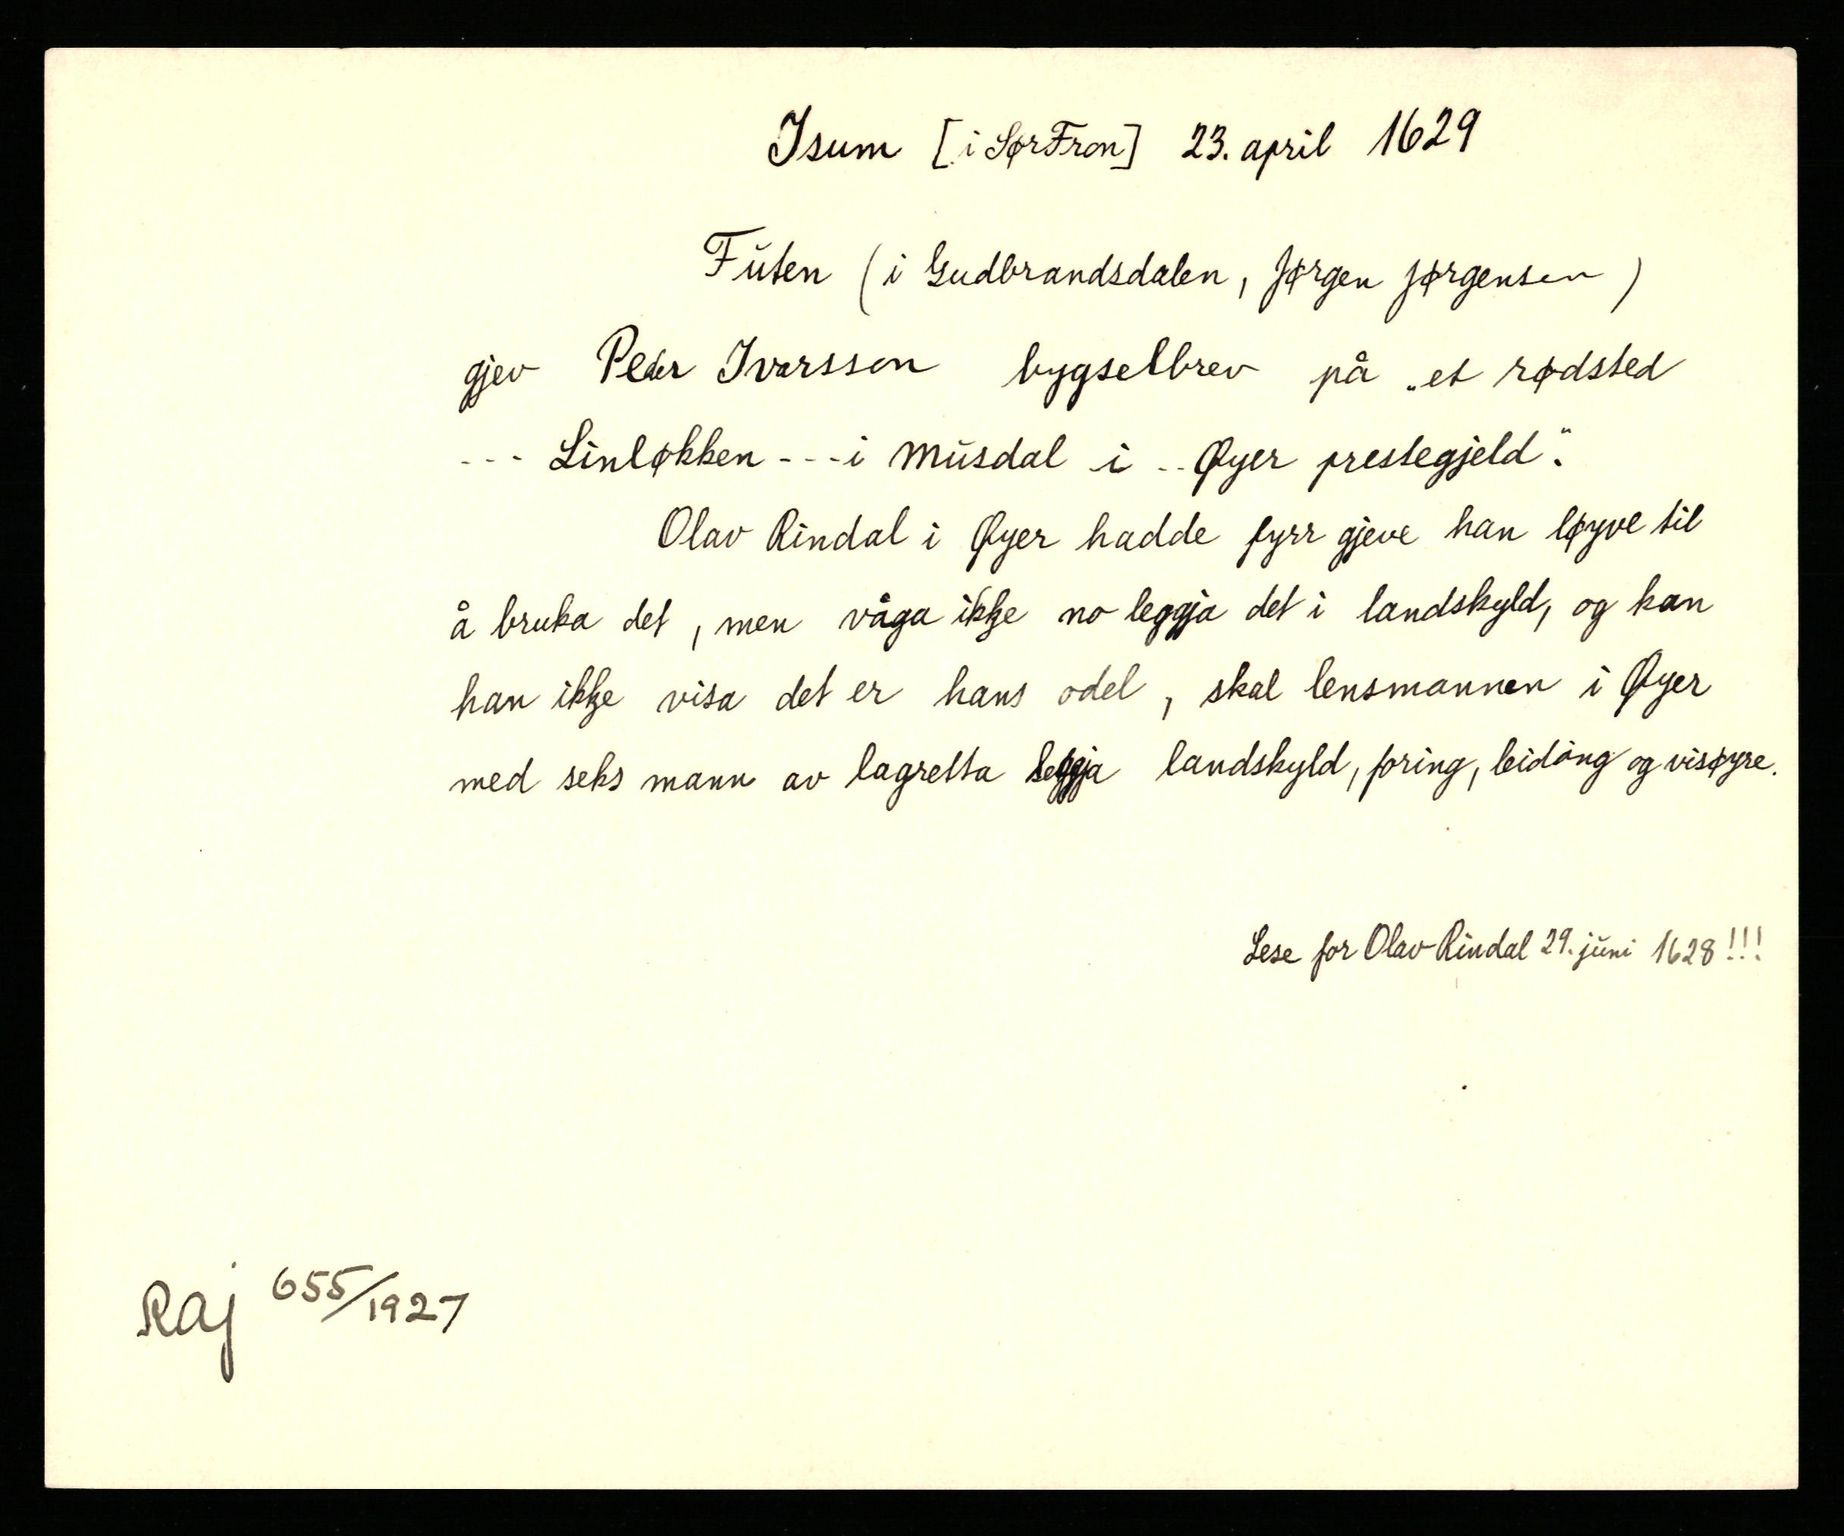 Isum [i Sør Fron] 23. april 1629
Fŭten (i Gudbrandsdalen, Jørgen Jørgensen)
gjev Peder Ivarsson bygselbrev på „et rødsted
--- Linløkken --- i Mŭsdal i -- Øyer prestegjeld".
Olav Rindal i Øyer hadde fyrr gjeve han løyve til
å bruka det, men våga ikkje no leggja det i landskyld, og kan
han ikkje visa det er hans odel, skal lensmannen i Øyer
med seks mann av lagretta leggja landskyld, foring, leidång og visøyre.
Lese for Olav Rindal 29. jŭni 1628!!!
Raj 655/1927